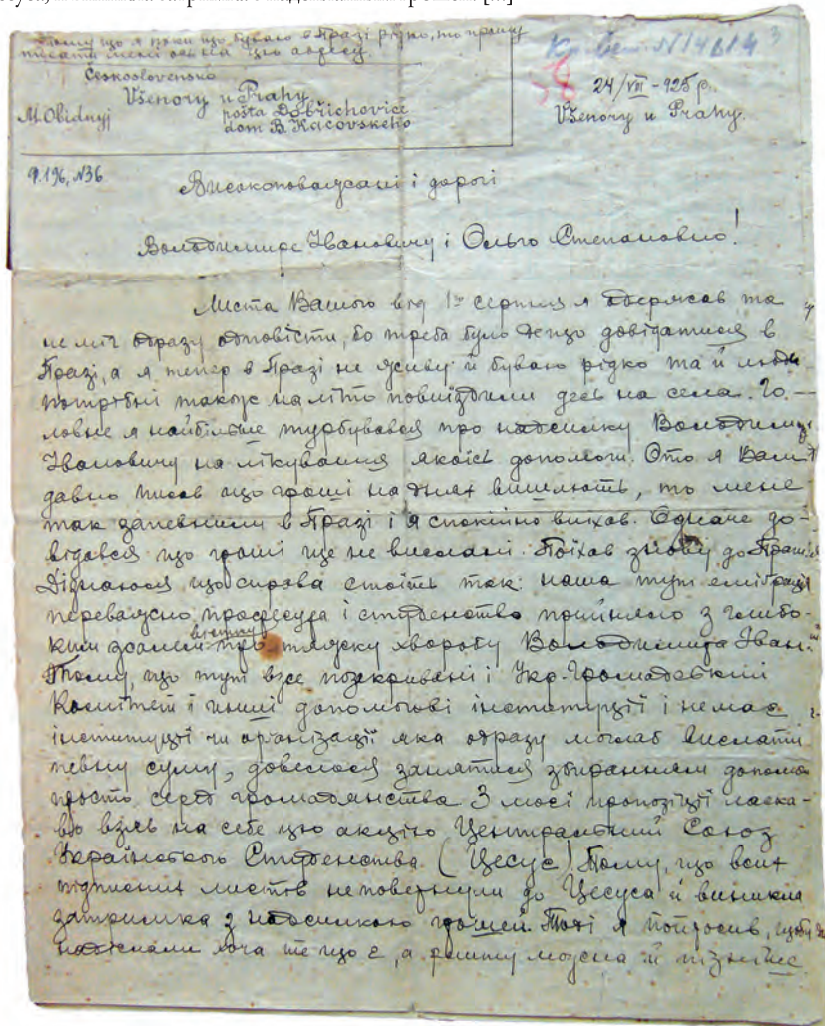 Тому що я поки що буваю в Празі рідко, то прошу
писати мені ось на цю адресу.
Československo
Všenory u Prahy
M. Obidnyj pošta Dobřichovice
dom B. Kacovskeho
24/VII - 925 р.
Všenory u Prahy.
Ф.196, N36
Високоповажані і дорогі
Володимире Івановичу і Ольго Степановно!
Листа Вашого від 1го серпня я одержав та
не міг одразу одповісти, бо треба було дещо довідатися в
Празі, а я тепер в Празі не живу й буваю рідко та й люди
потрібні також на літо повиїздили десь на села. Го-
ловне я найбільше турбувався про надсилку Володимиру
Івановичу на лікування якоїсь допомоги. Ото я Вам
давно писав що гроші на днях вишлють, то мене
так запевнили в Празі і я спокійно виїхав. Одначе до-
відався що гроші ще не вислані. Поїхав знову до Праги
Дізнаюся що справа стоїть так: наша тут еміграція
переважно професура і студенство прийняло з глибо-
ким жалем про тяжку хворобу Володимира Іван.
Тому, що тут вже позакривані і Укр. Громадський
Комітет і инші допомогові інституції і немає
інституції чи організації яка одразу могла б вислати
певну суму, довелося занятися збиранням допомоги
просто серед громадянства З моєї пропозиції ласка-
во взяв на себе цю акцію Центральний Союз
Українського Студенства (Цесус) Тому, що всіх
підписних листів не повернули до Цесуса й виникла
затримка з надсилкою грошей. Тоді я попросив, щоби
надіслали хоча те що є, а решту можна й пізнійше